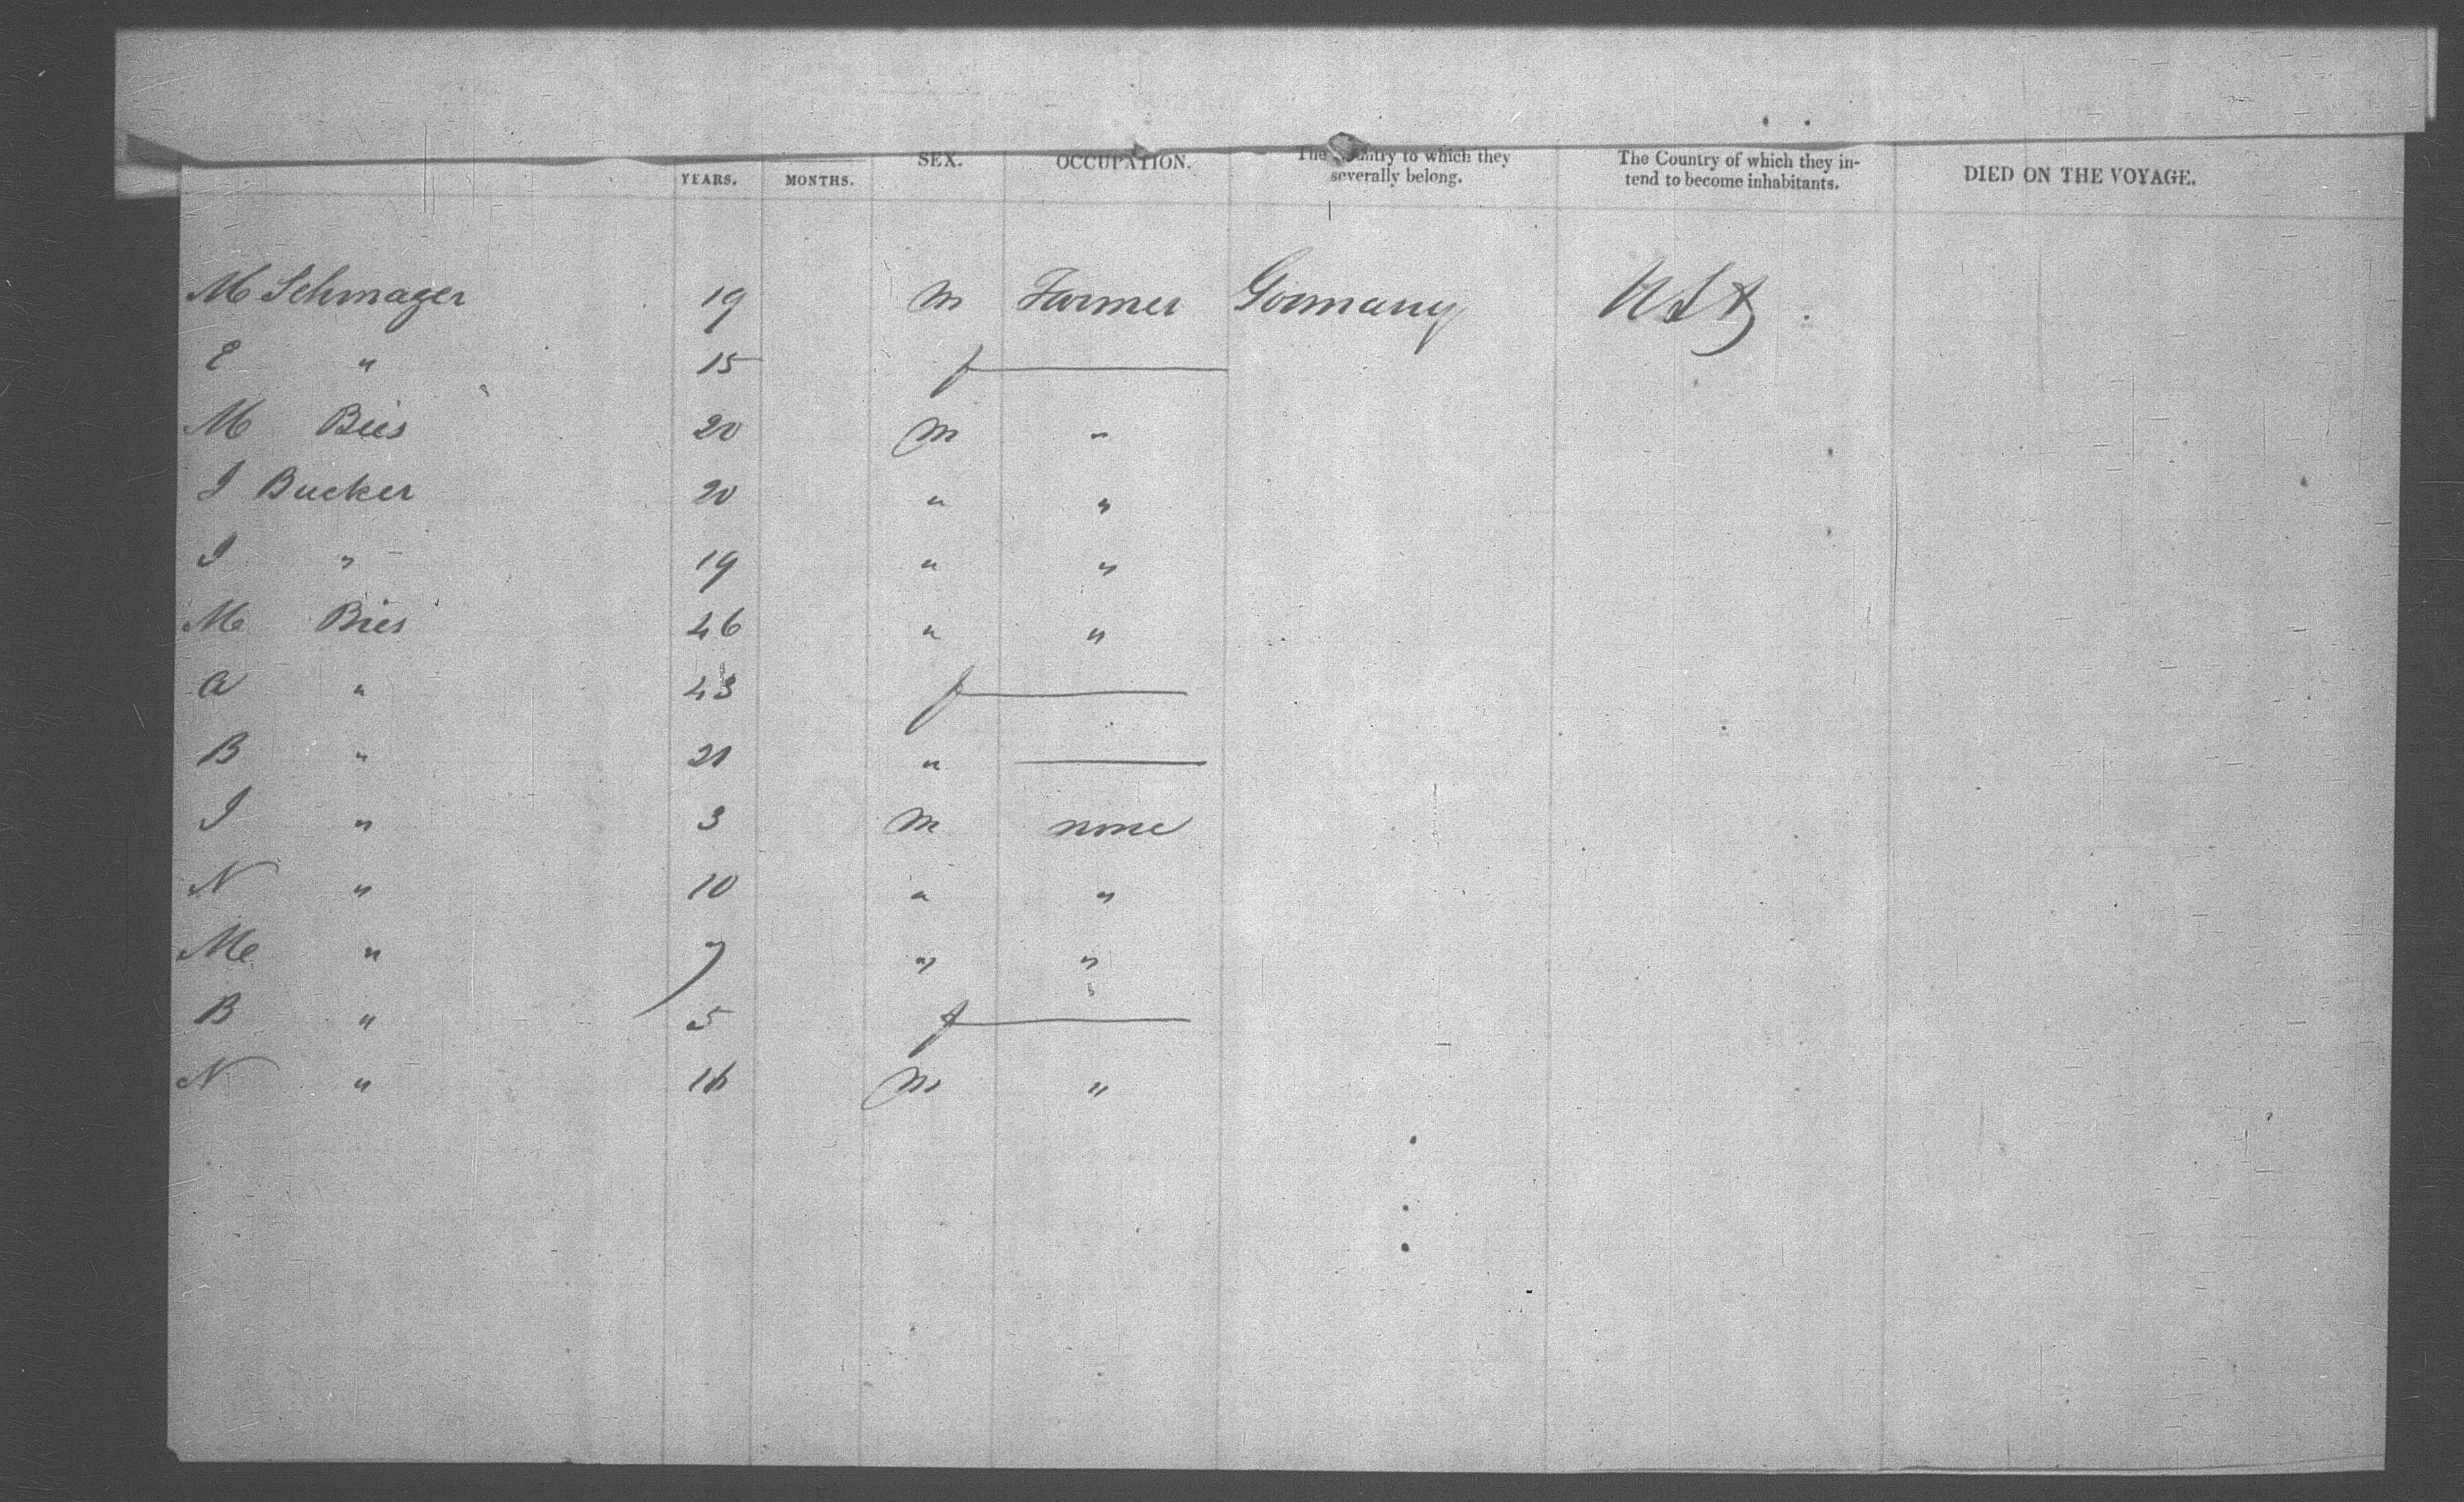 YEARS. MONTHS. SEX. OCCUPATION. The Country to which they severally belong. The Country of which they in-tend to become inhabitants. DIED ON THE VOYAGE.
M Schmager 19 m Farmer Germany USA
E " 15 f —
M Bies 20 m "
J Bucker 20 " "
J " 19 " "
M Bies 46 " "
A " 43 f —
B " 21 " —
J " 3 m none
N " 10 " "
M " 7 " "
B " 5 f —
N " m "